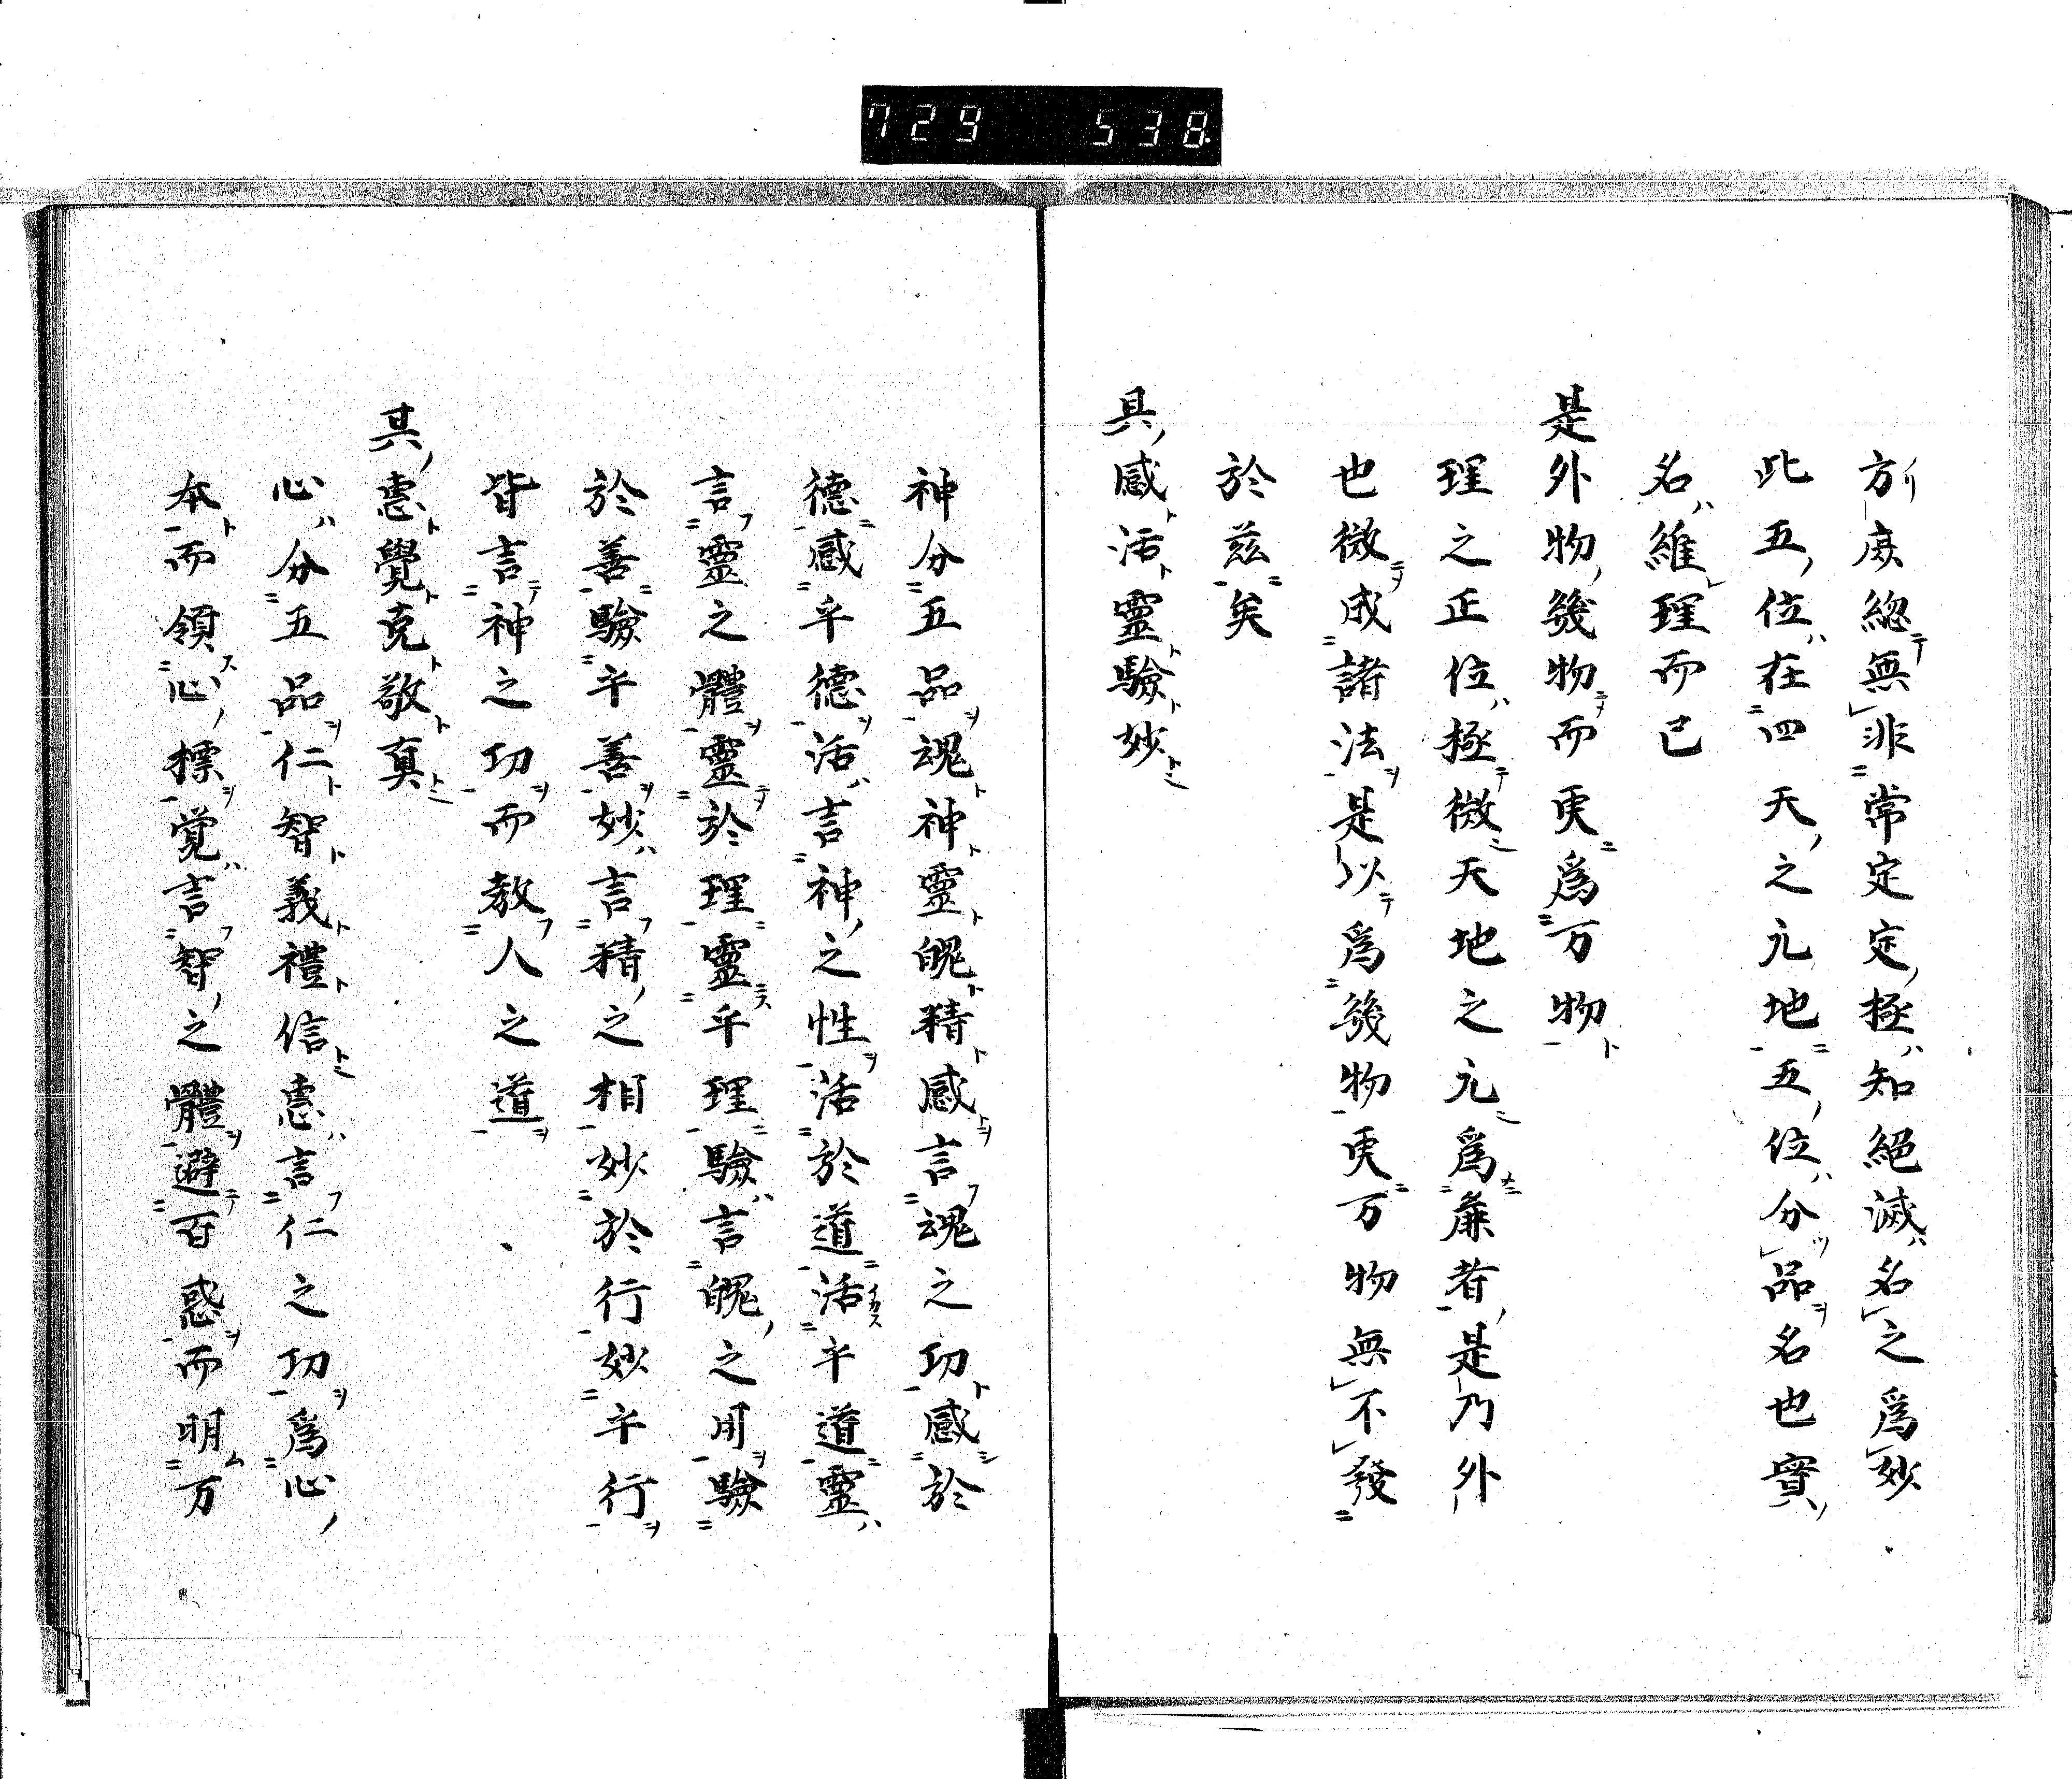 729 538
方庶総無非常定定極知絕滅名之爲妙
此五位在四天之元地五位分品名也實
名維理而已
是外物幾物而更爲万物
理之正位極微天地之元爲兼者是乃外
也微成諸法是以爲幾物更万物無不發
於茲矣
具感活靈驗妙
神分五品魂神靈魄精感言魂之功感於
德感乎德活言神之性活於道活乎道靈
言靈之體靈於理靈乎理驗言魄之用驗
於善驗乎善妙言精之相妙於行妙乎行
皆言神之功而教人之道
其惪覺克敬
心分五品仁智義禮信惪言仁之功爲心
本而領心標覚言智之體避百惑而明万